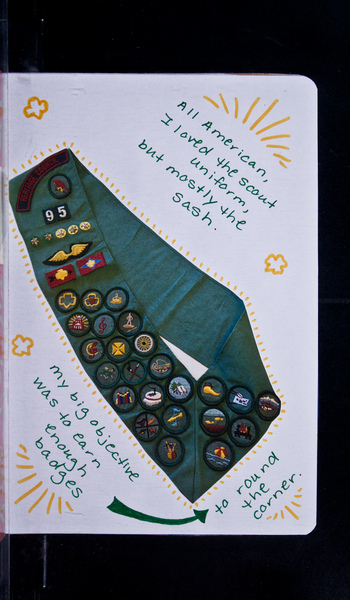 All American,
I loved the scout
uniform,
but mostly the
sash.
95
my big objective
was to earn
enough
badges
to round
the
corner.